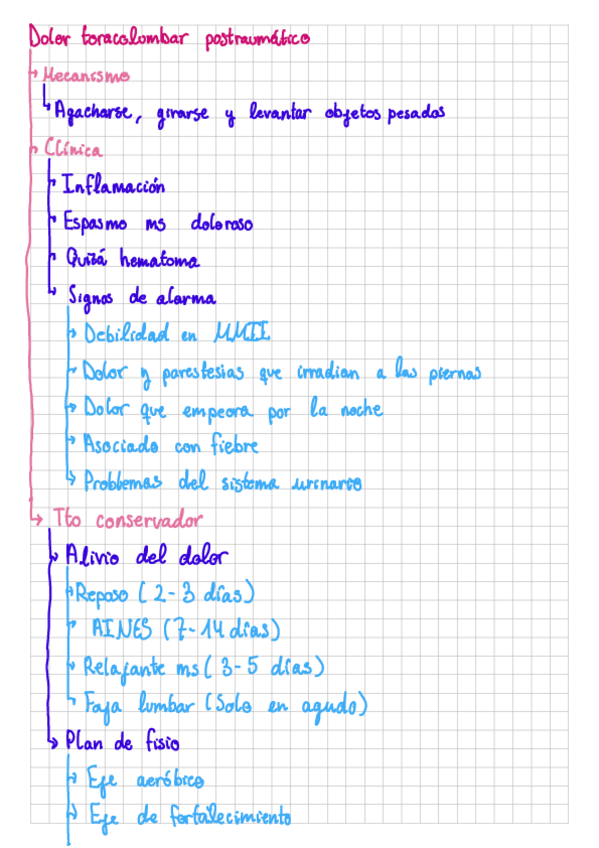 Dolor toracolumbar postraumático
Mecanismo
Agacharse, girarse y levantar objetos pesados
Clínica
Inflamación
Espasmo ms doloroso
Quizá hematoma
Signos de alarma
Debilidad en MMII
Dolor y parestesias que irradian a las piernas
Dolor que empeora por la noche
Asociado con fiebre
Problemas del sistema urinario
Tto conservador
Alivio del dolor
Reposo (2-3 días)
AINES (7-14 días)
Relajante ms (3-5 días)
Faja lumbar (Solo en agudo)
Plan de fisio
Eje aeróbico
Eje de fortalecimiento